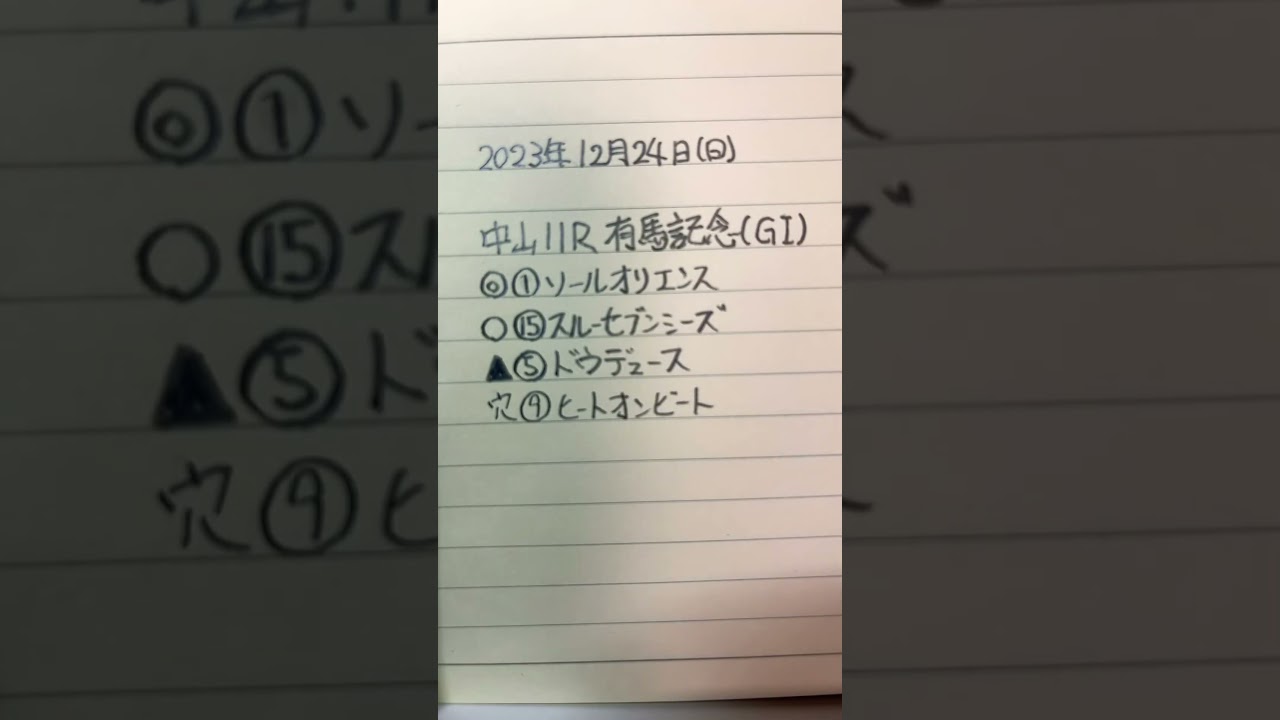 2023年12月24日(日)
中山11R 有馬記念(GI)
◎①ソールオリエンス
○⑮スルーセブンシーズ
▲⑤ドウデュース
穴⑨ヒートオンビート